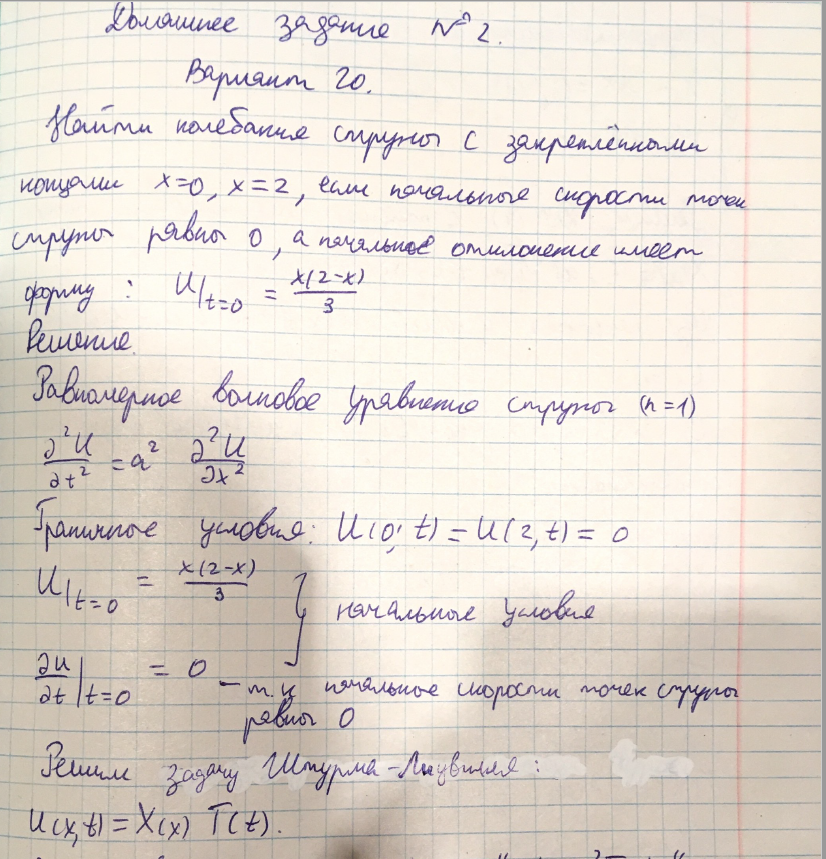 Домашнее задание №2.
Вариант 20.
Найти колебания струны с закреплёнными
концами x=0, x=2, если начальные скорости точек
струны равны 0, а начальное отклонение имеет
форму: U|t=0 = x(2-x)/3
Решение.
Равномерное волновое уравнение струны (n=1)
∂²U/∂t² = a² ∂²U/∂x²
Граничные условия: U(0; t) = U(2, t) = 0
U|t=0 = x(2-x)/3 } начальные условия
∂u/∂t|t=0 = 0 – т.к начальные скорости точек струны
равны 0
Решим задачу Штурма-Лиувилля:
U(x,t) = X(x) T(t).